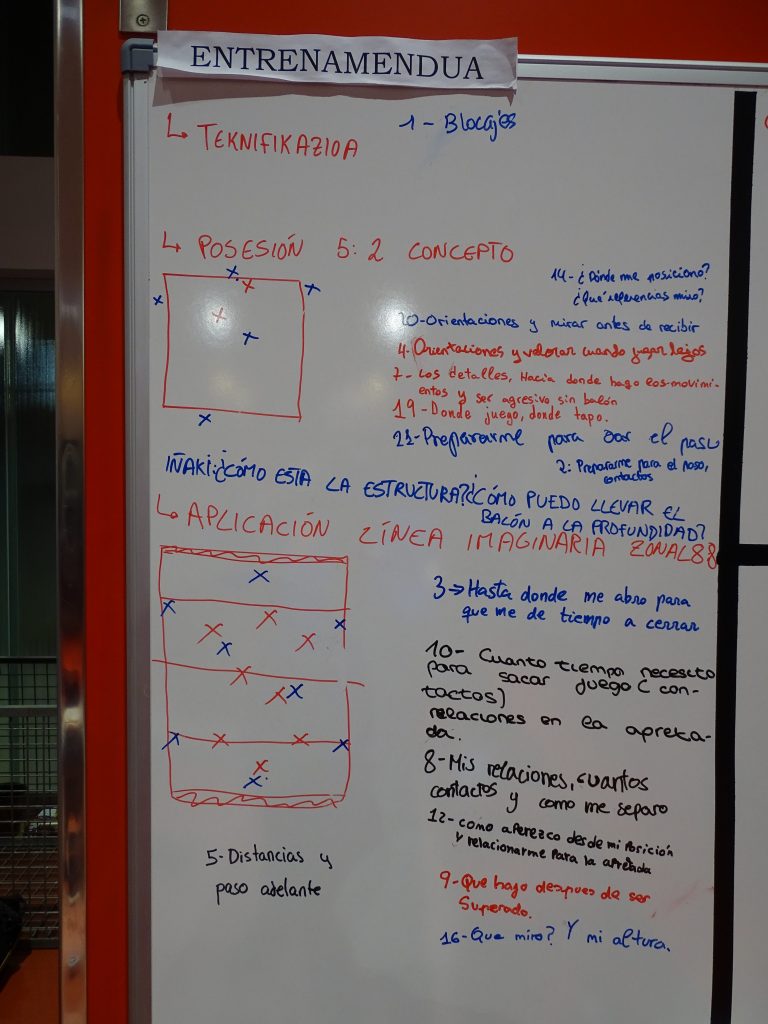 ENTRENAMENDUA
↳ TEKNIFIKAZIOA
1 - Blocajes
↳ POSESIÓN 5:2 CONCEPTO
14- ¿Dónde me posiciono?
¿Qué referencias miro?
20-Orientaciones y mirar antes de recibir
4- Orientaciones y valorar cuando jugar lejos
7- Los detalles, Hacia donde hago los movimi-
entos y ser agresivo sin balón
19-Donde juego, donde tapo.
21-Prepararme para dar el paso
2: Prepararme para el paso,
contactos
IÑAKI: ¿CÓMO ESTA LA ESTRUCTURA? ¿CÓMO PUEDO LLEVAR EL
BALÓN A LA PROFUNDIDAD?
↳ APLICACIÓN LÍNEA IMAGINARIA ZONAL 88
3→ Hasta donde me abro para
que me de tiempo a cerrar
10- Cuanto tiempo necesito
para sacar juego (con-
tactos)
relaciones en la apreta-
da.
8-Mis relaciones, cuantos
contactos y como me separo
12- como aperezco desde mi posición
y relacionarme para la apretada
5-Distancias y
paso adelante
9-Que hago despues de ser
Superado.
16-Que miro? Y mi altura.